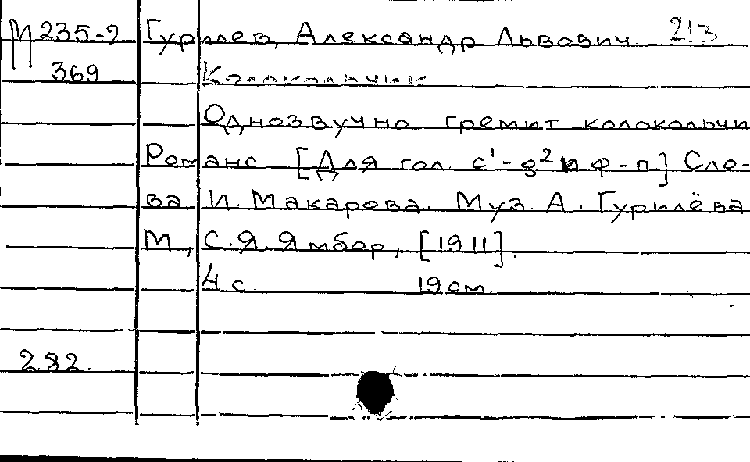 М 235-2 Гурилев, Александр Львович 213
369 Колокольчик
Однозвучно гремит колокольчи
Романс [Для гол. c¹-g² и ф-п] Сло-
ва И. Макарова. Муз. А. Гурилёва
М., С.Я. Ямбор, [1911].
4 с. 19 см
282.